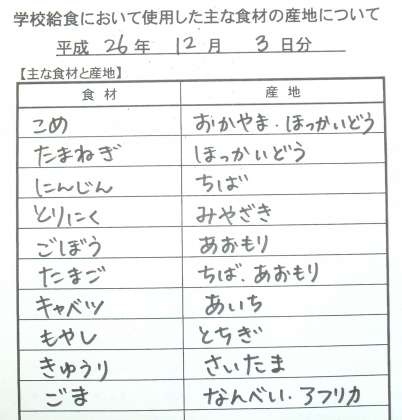 学校給食において使用した主な食材の産地について
平成 26 年 12 月 3 日分
【主な食材と産地】
食材 産地
こめ おかやま・ほっかいどう
たまねぎ ほっかいどう
にんじん ちば
とりにく みやざき
ごぼう あおもり
たまご ちば、あおもり
キャベツ あいち
もやし とちぎ
きゅうり さいたま
ごま なんべい・アフリカ